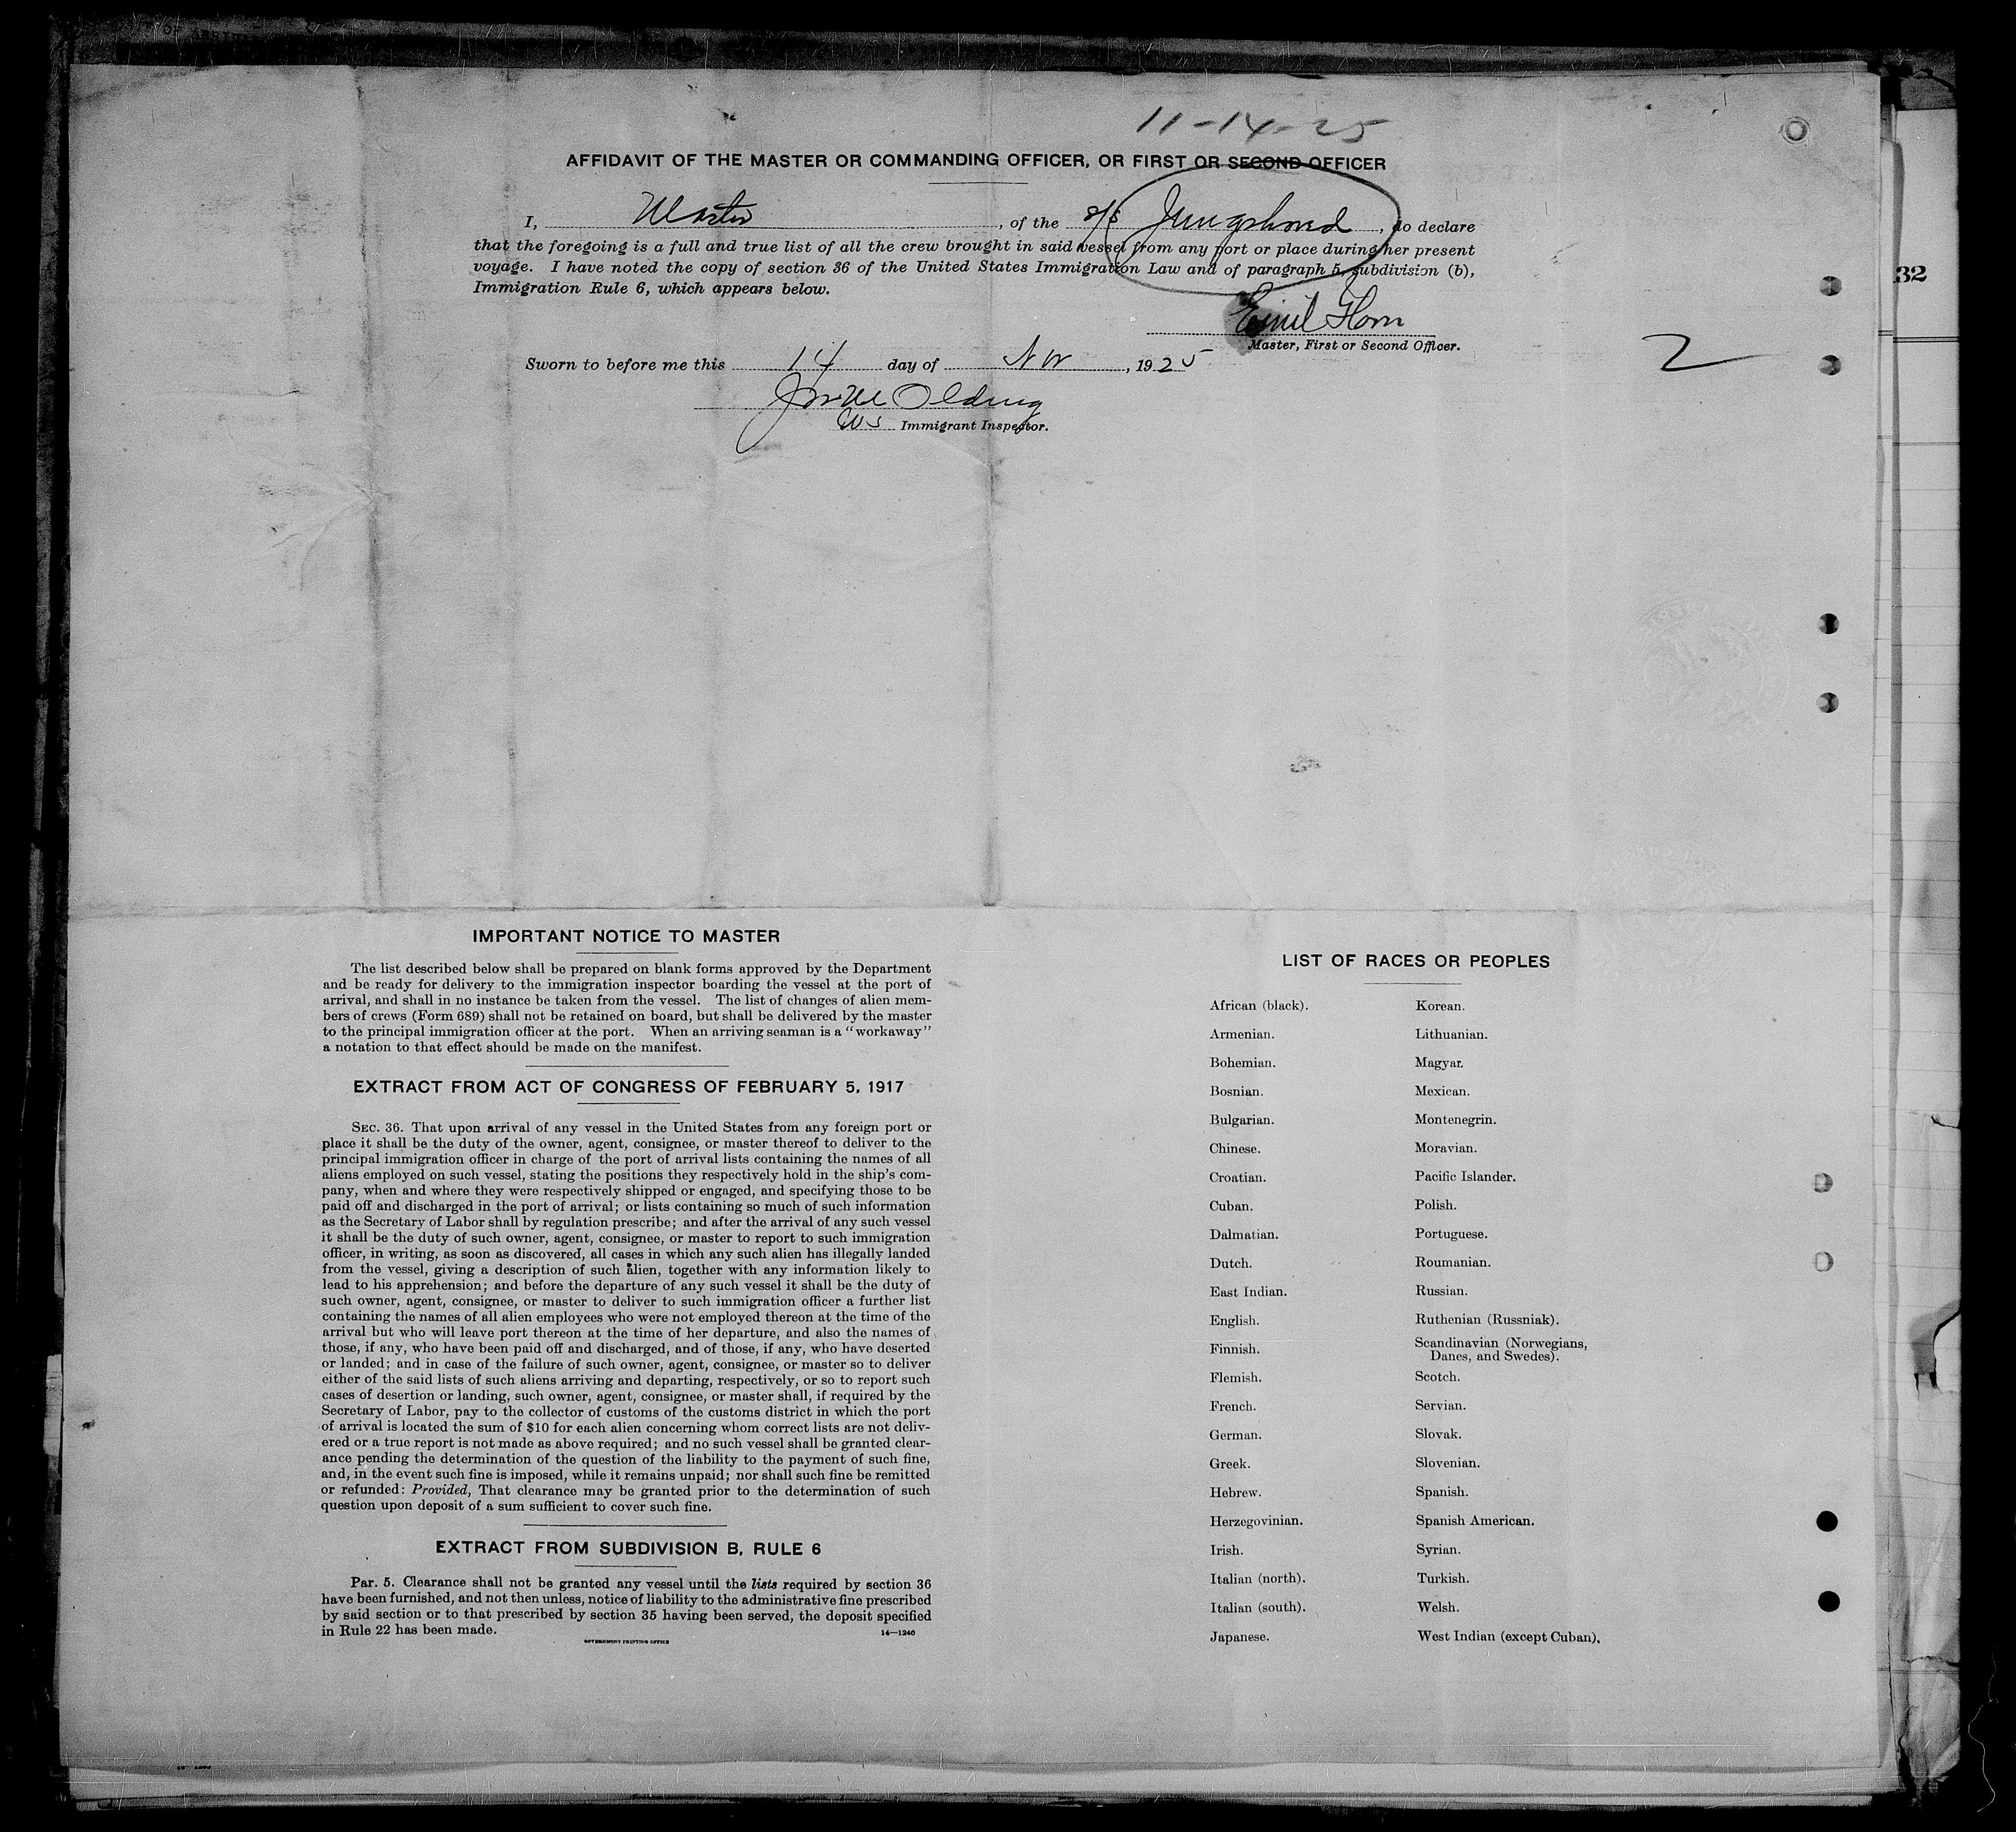 11-14-25
AFFIDAVIT OF THE MASTER OR COMMANDING OFFICER, OR FIRST OR SECOND OFFICER
I, Master, of the s/s Jungshoved, do declare
that the foregoing is a full and true list of all the crew brought in said vessel from any port or place during her present
voyage. I have noted the copy of section 36 of the United States Immigration Law and of paragraph 5, subdivision (b),
Immigration Rule 6, which appears below.
Emil Horn
Master, First or Second Officer.
Sworn to before me this 14 day of Nov, 1925
Olding
US Immigrant Inspector.
2
32
IMPORTANT NOTICE TO MASTER
The list described below shall be prepared on blank forms approved by the Department
and be ready for delivery to the immigration inspector boarding the vessel at the port of
arrival, and shall in no instance be taken from the vessel. The list of changes of alien mem-
bers of crews (Form 689) shall not be retained on board, but shall be delivered by the master
to the principal immigration officer at the port. When an arriving seaman is a "workaway"
a notation to that effect should be made on the manifest.
EXTRACT FROM ACT OF CONGRESS OF FEBRUARY 5, 1917
SEC. 36. That upon arrival of any vessel in the United States from any foreign port or
place it shall be the duty of the owner, agent, consignee, or master thereof to deliver to the
principal immigration officer in charge of the port of arrival lists containing the names of all
aliens employed on such vessel, stating the positions they respectively hold in the ship's com-
pany, when and where they were respectively shipped or engaged, and specifying those to be
paid off and discharged in the port of arrival; or lists containing so much of such information
as the Secretary of Labor shall by regulation prescribe; and after the arrival of any such vessel
it shall be the duty of such owner, agent, consignee, or master to report to such immigration
officer, in writing, as soon as discovered, all cases in which any such alien has illegally landed
from the vessel, giving a description of such alien, together with any information likely to
lead to his apprehension; and before the departure of any such vessel it shall be the duty of
such owner, agent, consignee, or master to deliver to such immigration officer a further list
containing the names of all alien employees who were not employed thereon at the time of the
arrival but who will leave port thereon at the time of her departure, and also the names of
those, if any, who have been paid off and discharged, and of those, if any, who have deserted
or landed; and in case of the failure of such owner, agent, consignee, or master so to deliver
either of the said lists of such aliens arriving and departing, respectively, or so to report such
cases of desertion or landing, such owner, agent, consignee, or master shall, if required by the
Secretary of Labor, pay to the collector of customs of the customs district in which the port
of arrival is located the sum of $10 for each alien concerning whom correct lists are not deliv-
ered or a true report is not made as above required; and no such vessel shall be granted clear-
ance pending the determination of the question of the liability to the payment of such fine,
and, in the event such fine is imposed, while it remains unpaid; nor shall such fine be remitted
or refunded: Provided, That clearance may be granted prior to the determination of such
question upon deposit of a sum sufficient to cover such fine.
EXTRACT FROM SUBDIVISION B, RULE 6
Par. 5. Clearance shall not be granted any vessel until the lists required by section 36
have been furnished, and not then unless, notice of liability to the administrative fine prescribed
by said section or to that prescribed by section 35 having been served, the deposit specified
in Rule 22 has been made.
14—1240
GOVERNMENT PRINTING OFFICE
LIST OF RACES OR PEOPLES
African (black).
Armenian.
Bohemian.
Bosnian.
Bulgarian.
Chinese.
Croatian.
Cuban.
Dalmatian.
Dutch.
East Indian.
English.
Finnish.
Flemish.
French.
German.
Greek.
Hebrew.
Herzegovinian.
Irish.
Italian (north).
Italian (south).
Japanese.
Korean.
Lithuanian.
Magyar.
Mexican.
Montenegrin.
Moravian.
Pacific Islander.
Polish.
Portuguese.
Roumanian.
Russian.
Ruthenian (Russniak).
Scandinavian (Norwegians,
Danes, and Swedes).
Scotch.
Servian.
Slovak.
Slovenian.
Spanish.
Spanish American.
Syrian.
Turkish.
Welsh.
West Indian (except Cuban).